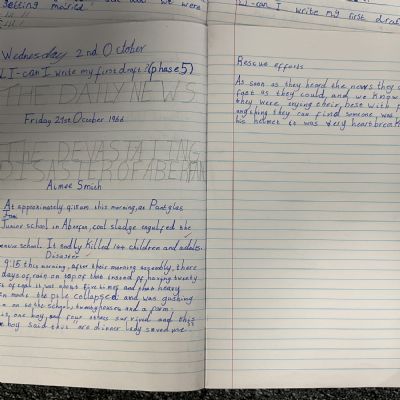 getting married. and we were
Wednesday 2nd October
LI-can I write my first draft?(phase 5)
THE DAILY NEWS
Friday 21st October 1966
THE DEVASTATING
DISASTER OF ABERFAN
Aimee Smith
At approximately 9:15am this morning, as Pantglas
Junior school in Aberfan, coal sludge engulfed the
school. It sadly killed 144 children and adults.
Disaster
9:15 this morning, after their morning assembly, there
days of rain on top of that insead of having twenty
of coal it was about five times and than heavy
made the pile collapsed and was gushing
on to the school, twenty houses and a farm
one boy, and four others survived and this
boy said this "are dinner lady saved use
LI-can I write my first draf
Rescue efforts
As soon as they heard the news they
fast as they could, and we know
they were trying their best with
anything they can find someone was
his helmet it was very heartbreak